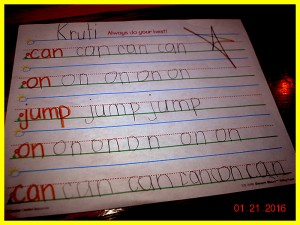 Kruti
Always do your best!
can can can can
on on on on on
jump jump jump
on on on on on on
can can can can on can
01 21 2016